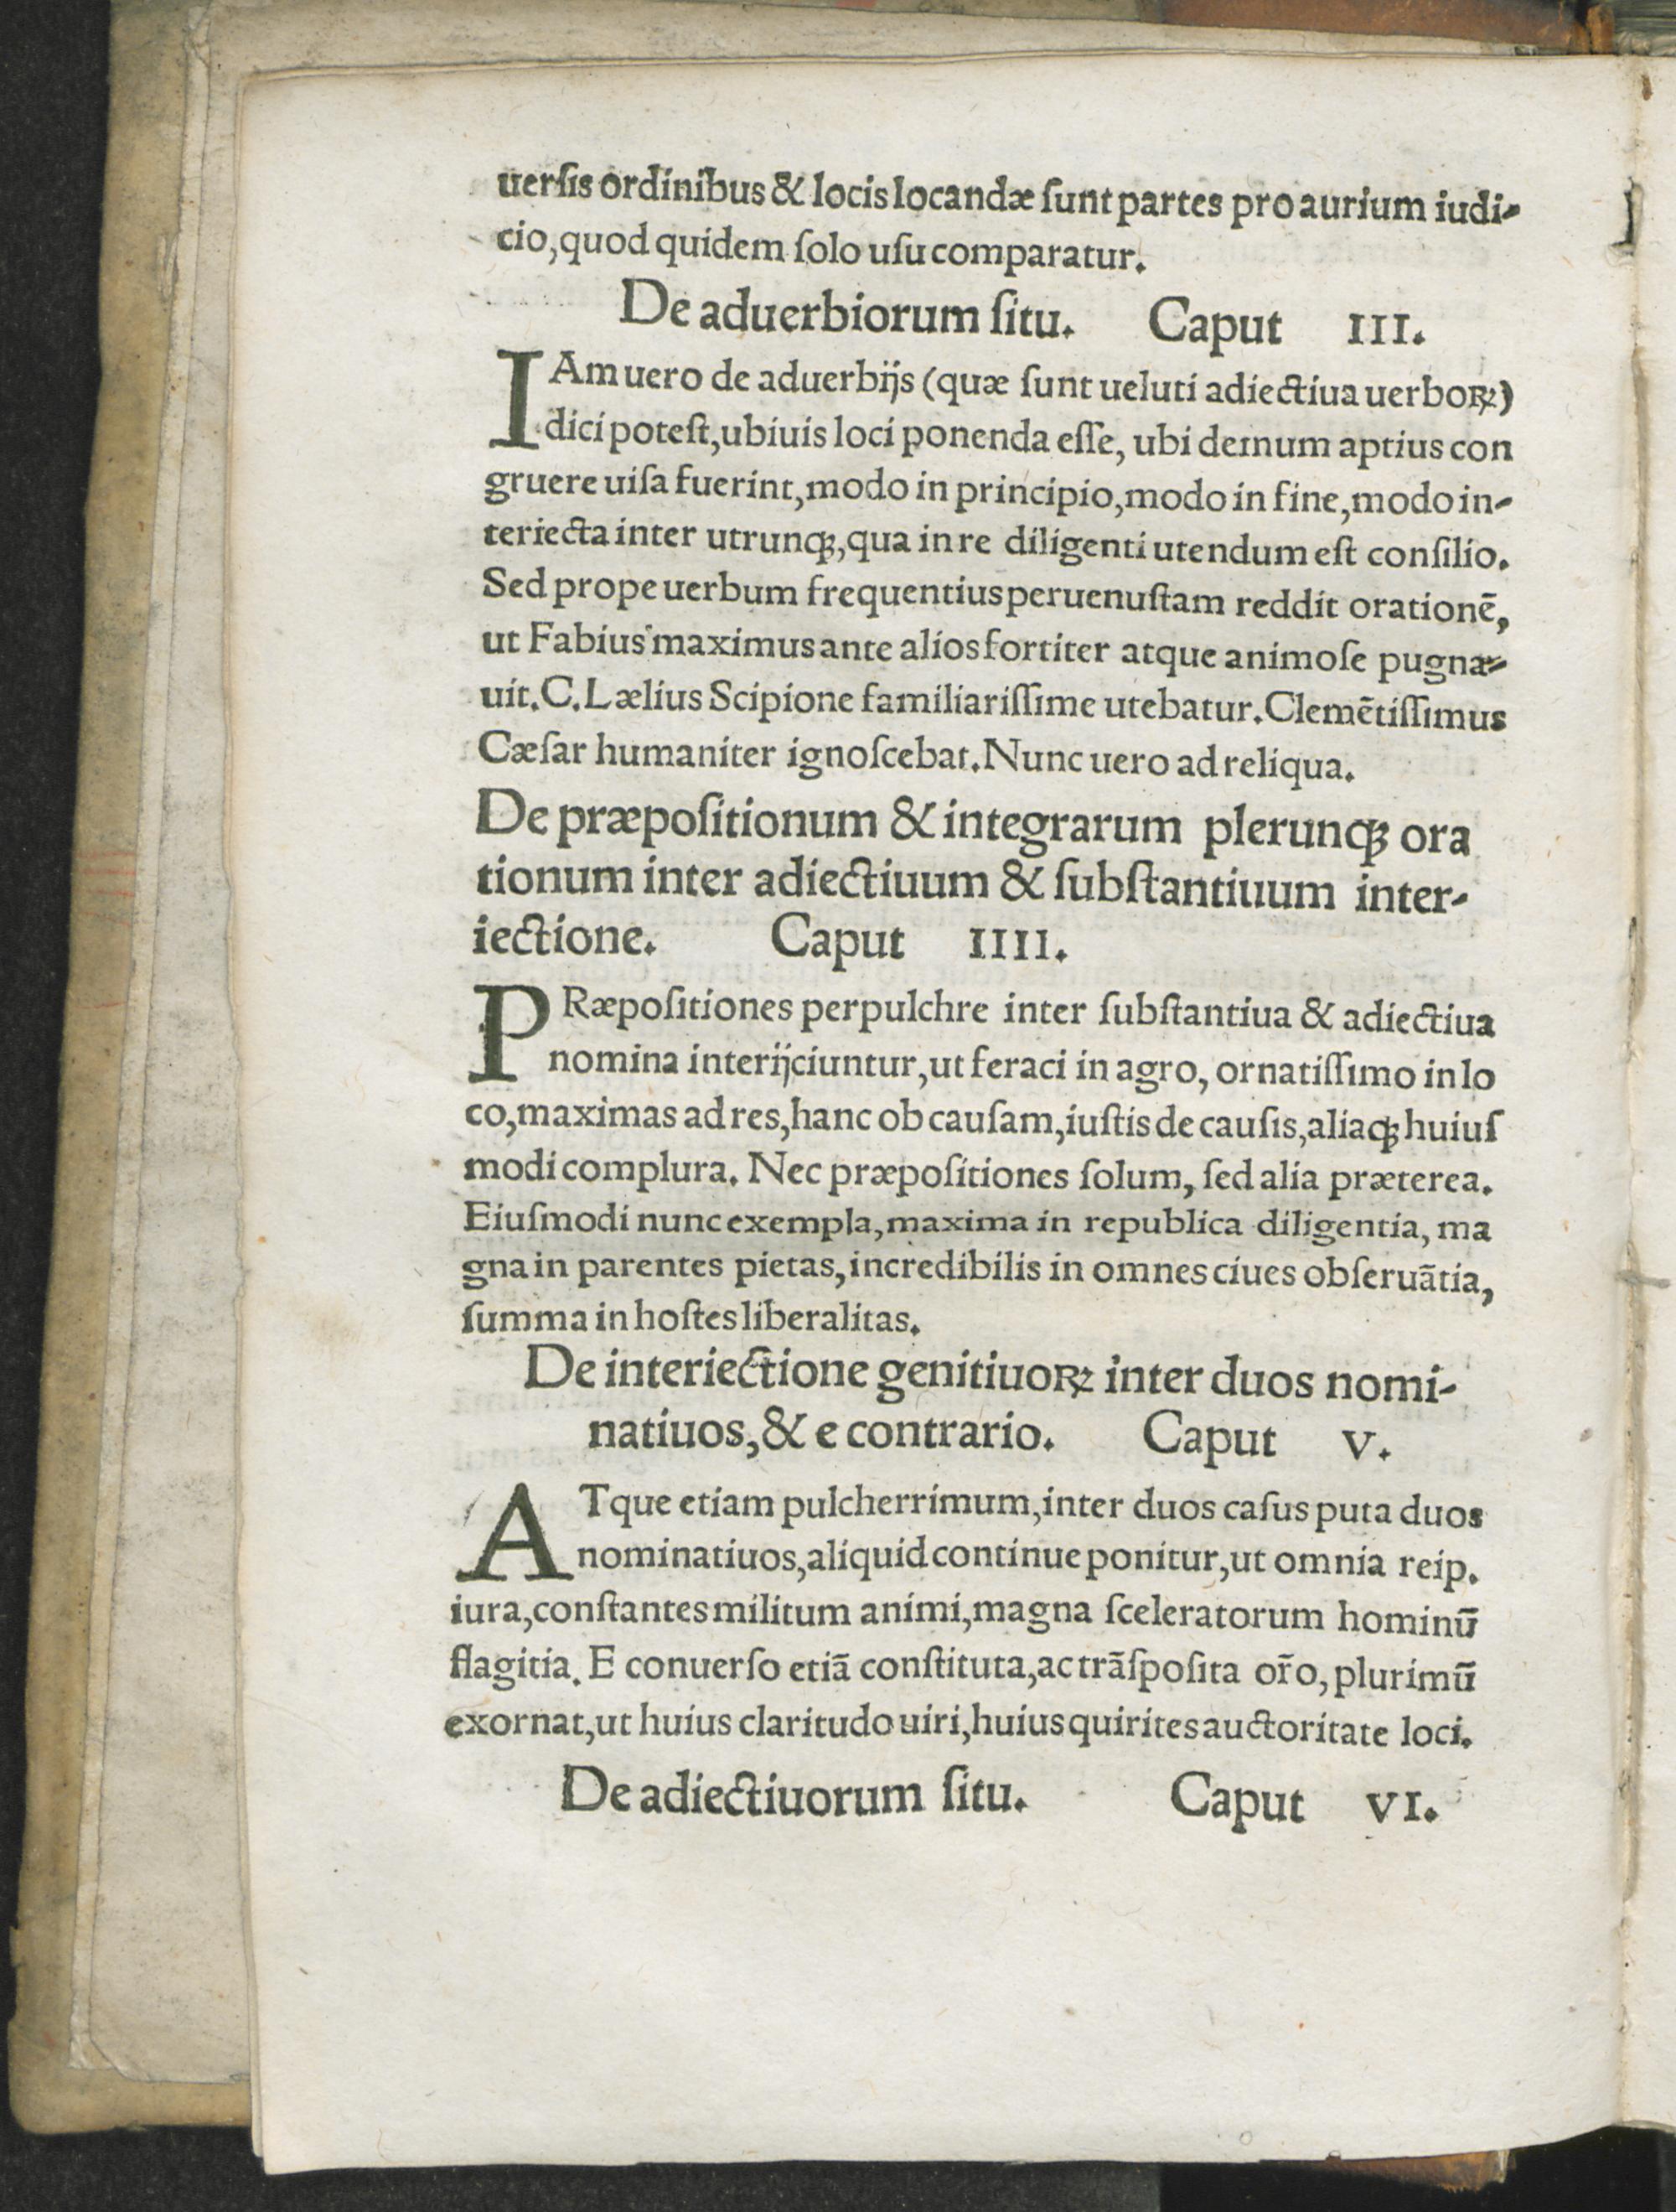 uerſis ordinibus & locis locandæ ſunt partes pro aurium iudi-
cio, quod quidem ſolo uſu comparatur.
De aduerbiorum ſitu. Caput III.
IAm uero de aduerbijs (quæ ſunt ueluti adiectiua uerboꝝ)
dici poteſt, ubiuis loci ponenda eſſe, ubi demum aptius con
gruere uiſa fuerint, modo in principio, modo in fine, modo in-
teriecta inter utrunqꝫ, qua in re diligenti utendum eſt conſilio.
Sed prope uerbum frequentius peruenuſtam reddit orationē,
ut Fabius maximus ante alios fortiter atque animoſe pugna-
uit. C. Lælius Scipione familiariſſime utebatur. Clemētiſſimus
Cæſar humaniter ignoſcebat. Nunc uero ad reliqua.
De præpoſitionum & integrarum plerunqꝫ ora
tionum inter adiectiuum & ſubſtantiuum inter-
iectione. Caput IIII.
PRæpoſitiones perpulchre inter ſubſtantiua & adiectiua
nomina interijciuntur, ut feraci in agro, ornatiſſimo in lo
co, maximas ad res, hanc ob cauſam, iuſtis de cauſis, aliaqꝫ huiuſ
modi complura. Nec præpoſitiones ſolum, ſed alia præterea.
Eiuſmodi nunc exempla, maxima in republica diligentia, ma
gna in parentes pietas, incredibilis in omnes ciues obſeruātia,
ſumma in hoſtes liberalitas.
De interiectione genitiuoꝝ inter duos nomi-
natiuos, & e contrario. Caput V.
ATque etiam pulcherrimum, inter duos caſus puta duos
nominatiuos, aliquid continue ponitur, ut omnia reip.
iura, conſtantes militum animi, magna ſceleratorum hominū
flagitia. E conuerſo etiā conſtituta, ac trāſpoſita or̄o, plurimū
exornat, ut huius claritudo uiri, huius quirites auctoritate loci.
De adiectiuorum ſitu. Caput VI.